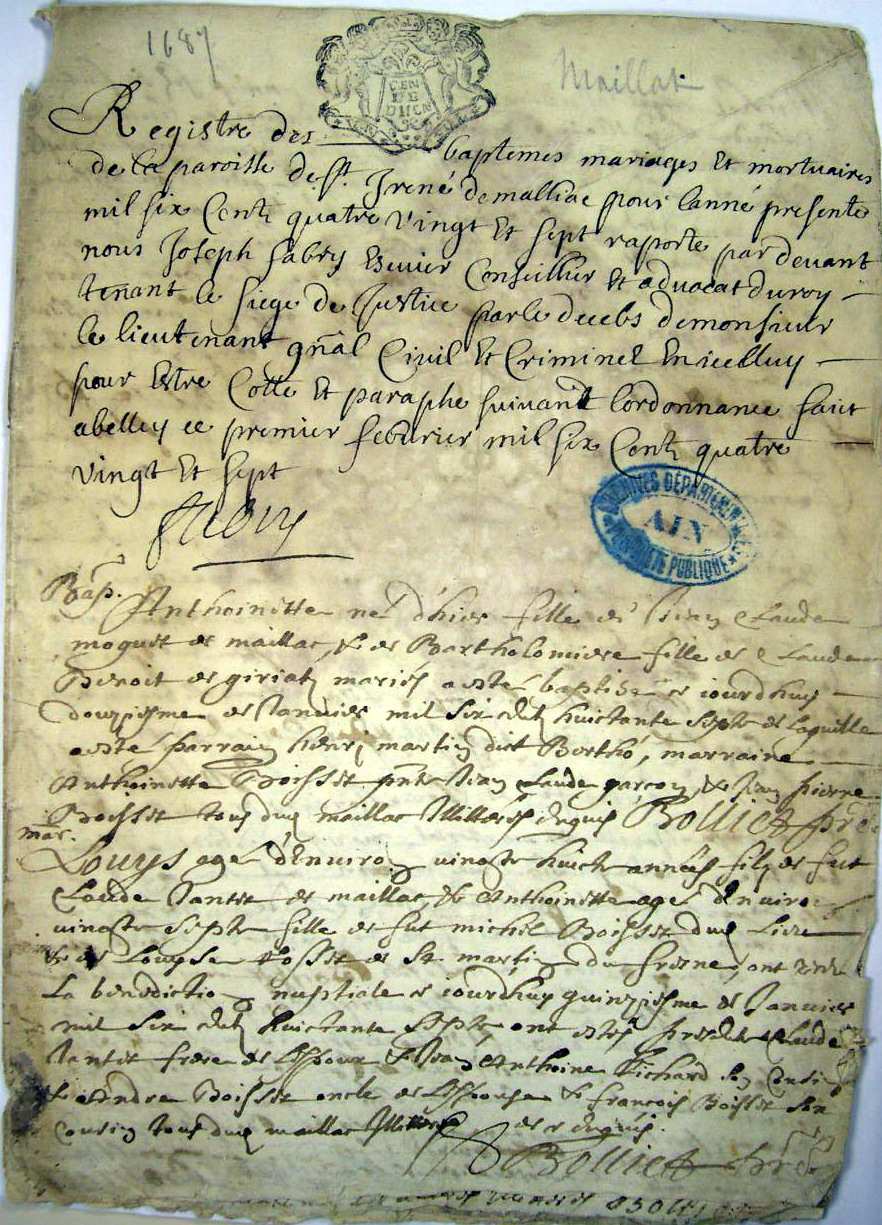 1687
Maillat
GEN
DE
DIICN
Registre des baptemes mariages et mortuaires
de la paroisse de St Irené de malliac pour lanné presente
mil six Cent quatre vingt et sept raporte par devant
nous Joseph fabry Escuier Conseillier et advocat du roy
tenant le siege de Justice par le decebs de monsieur
le lieutenant gnãl Civil et Criminel En icelluy
pour Estre Cotte et paraphe suivant lordonnance faict
a belley ce premier febvrier mil six Cent quatre
vingt et sept
fabry
ARCHIVES DÉPARTEMENTALES
AIN
PROPRIÉTÉ PUBLIQUE
Bap.
Anthoinette neé d'hier fille de Jean Claude
moguet de maillac, & de Bartholomiere fille de Claude
Benoit de giriat mariés a esté baptisée ce iourdhuy
douziesme de Janvier mil six cent huictante septe de laquelle
a esté parrain henri martin dict Bertho, marraine
Anthoinette Boisset pnts Jean Claude garçon, & Jean pierre
Boisset tous dud maillac illitterés enquis Bolliet pre
mar.
Louys agé d'Environ vingte huict années filz de fut
Claude Tantet de maillac, & Anthoinette agée denviron
vingte septe fille de fut michel Boisset dud lieu
& de Louyse Cosset de St martin du fresne, ont receu
La benediction nuptiale ce iourdhuy quinziesme de Janvier
mil six cent huictante septe, ont estés presents Claude
Tantet frere de lespoux & Jean Anthoine Richard son Cousin
& Andre Boisset oncle de lespouse & francois Boisset son
Cousin tous dud maillac illitterés de ce enquis.
Bolliet pre